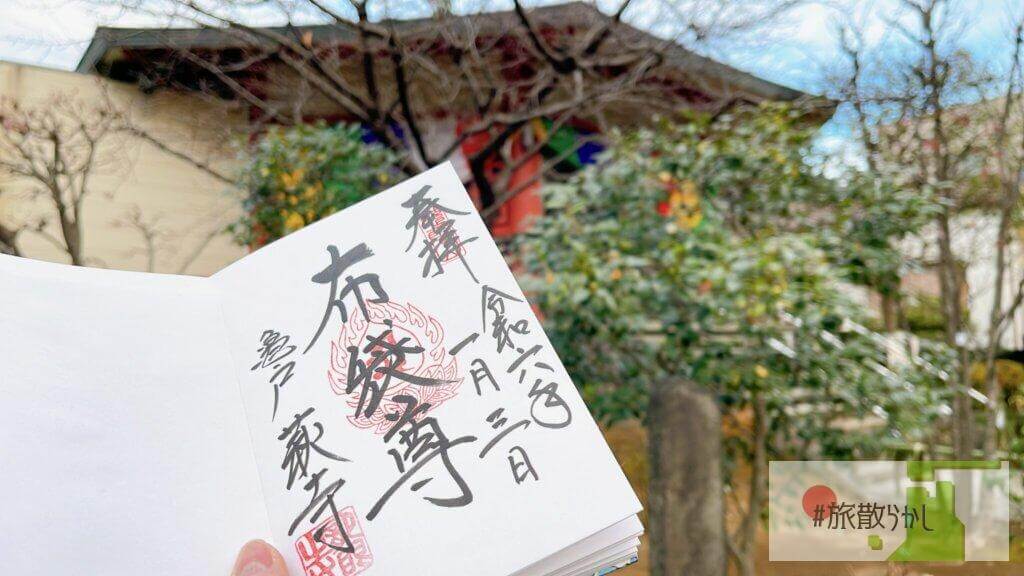 奉拝
令和六年
一月三日
布袋尊
亀戸
萩寺
#旅散らかし